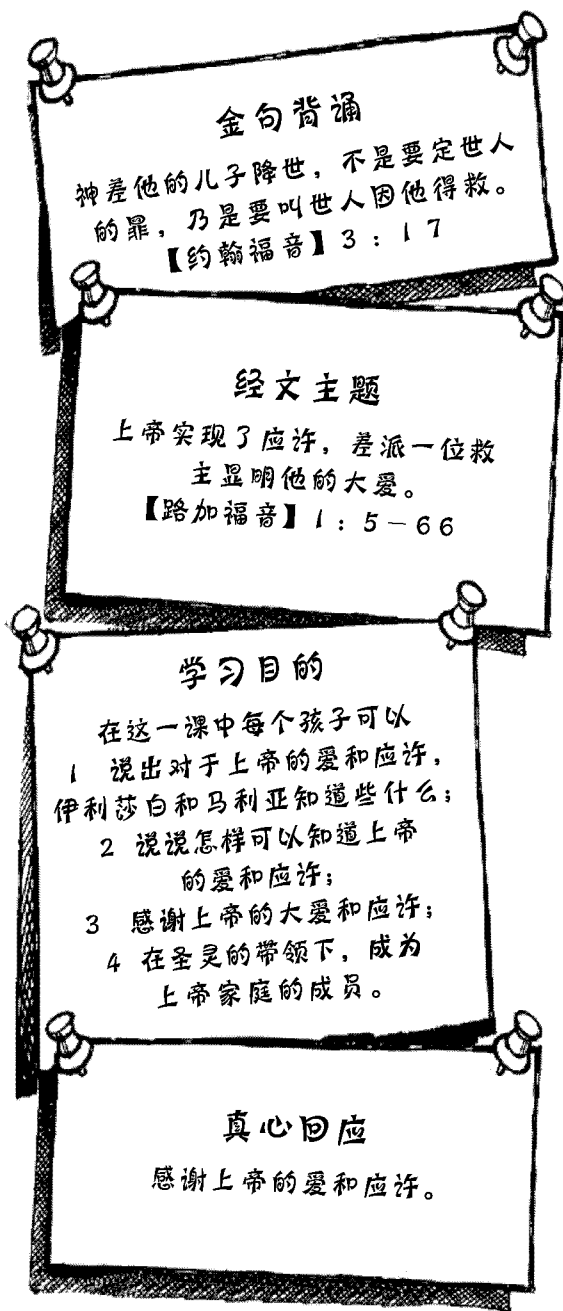 金句背诵
神差他的儿子降世，不是要定世人
的罪，乃是要叫世人因他得救。
【约翰福音】3：17
经文主题
上帝实现了应许，差派一位救
主显明他的大爱。
【路加福音】1：5－66
学习目的
在这一课中每个孩子可以
1 说出对于上帝的爱和应许，
伊利莎白和马利亚知道些什么；
2 说说怎样可以知道上帝
的爱和应许；
3 感谢上帝的大爱和应许；
4 在圣灵的带领下，成为
上帝家庭的成员。
真心回应
感谢上帝的爱和应许。